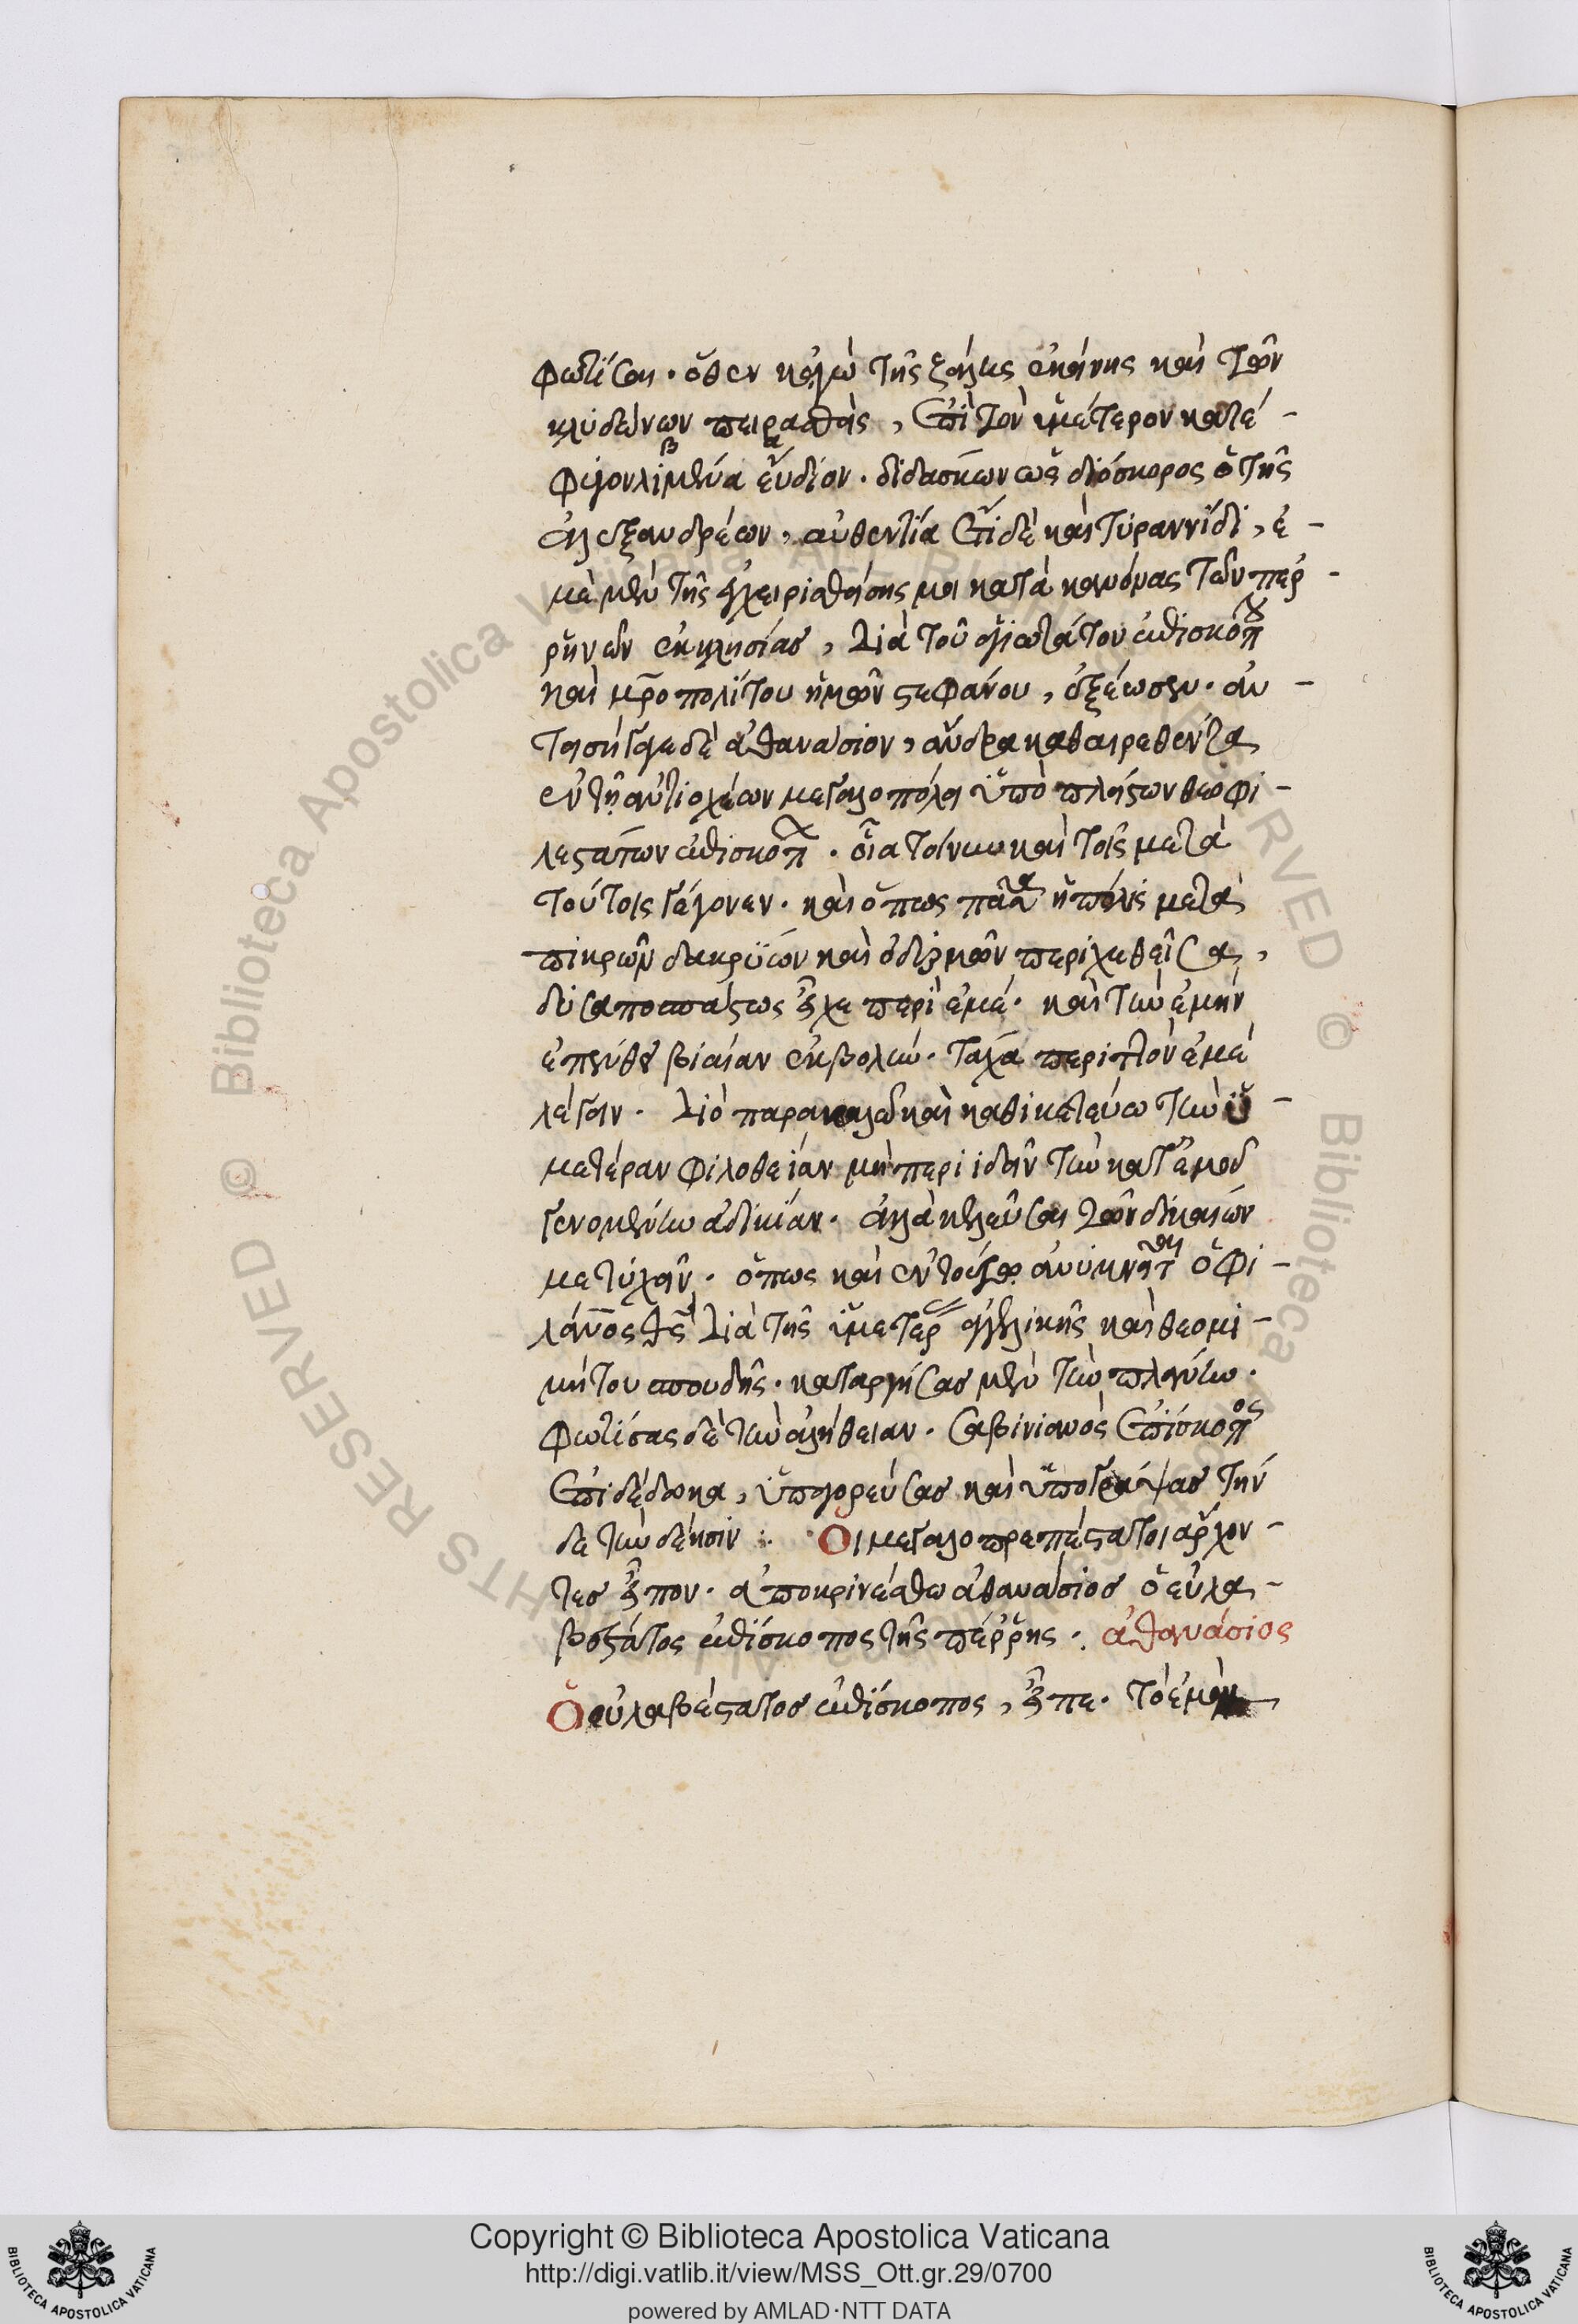 φωτίσαι. ὅθεν κἀγὼ τῆς ζάλης ἐκείνης καὶ τῶν
κλυδώνων πειρασθεὶς, ἐπὶ τὸν ὑμέτερον κατέ-
φυγον λιμένα εὔδιον. διδάσκων ὡς διόσκορος ὁ τῆς
ἀλεξανδρέων, αὐθεντία ἔτι δὲ καὶ τυραννίδι, ἐ-
μὲ μὲν τῆς ἐγχειρισθείσης μοι κατὰ κανόνας τῶν περ-
ρηνῶν ἐκκλησίας, διὰ τοῦ ἁγιωτάτου ἐπισκόπου
καὶ μρο πολίτου ἡμῶν στεφάνου, ἐξέωσεν. ἀν-
τεισήγαγε δὲ ἀθανάσιον, ἄνδρα καθαιρεθέντα
ἐν τῇ ἀντιοχέων μεγαλοπόλει ὑπὸ πλείστων θεοφι-
λεστάτων ἐπισκόπων. οἷα τοίνυν καὶ τοῖς μετὰ
τούτοις γέγονεν. καὶ ὅπως πᾶσα ἡ πόλις μετὰ
πικρῶν δακρύων καὶ ὀδυρμῶν περιχεθεῖσα,
δυσαποσπάστως εἶχε περὶ ἐμέ. καὶ τὴν ἐμὴν
ἐπένθει βιαίαν ἐκβολὴν. τάχα περιττὸν ἐμὲ
λέγειν. διὸ παρακαλῶ καὶ καθικετεύω τὴν ὑ-
μετέραν φιλοθείαν μὴ περιιδεῖν τὴν κατ' ἐμοῦ
γενομένην ἀδικίαν. ἀλλὰ κελεῦσαι τῶν δικαίων
με τυχεῖν. ὅπως καὶ ἐν τούτῳ ἀνυμνηθῇ ὁ φι-
λάνος θς διὰ τῆς ὑμετέρ ἀγγελικῆς καὶ θεομι-
μήτου σπουδῆς. καταργήσας μὲν τὴν πλάνην.
φωτίσας δὲ τὴν ἀλήθειαν. σαβινιανὸς ἐπίσκοπος
ἐπιδέδωκα, ὑπαγορεύσας καὶ ὑπογράψας τήν
δε τὴν δέησιν :. Οἱ μεγαλοπρεπέστατοι ἄρχον-
τες εἶπον. ἀποκρινέσθω ἀθανάσιος ὁ εὐλα-
βέστατος ἐπίσκοπος τῆς πέρρης. ἀθανάσιος
Ὁ εὐλαβέστατος ἐπίσκοπος, εἶπε. τὸ ἐμὸν
Copyright © Biblioteca Apostolica Vaticana
http://digi.vatlib.it/view/MSS_Ott.gr.29/0700
powered by AMLAD·NTT DATA